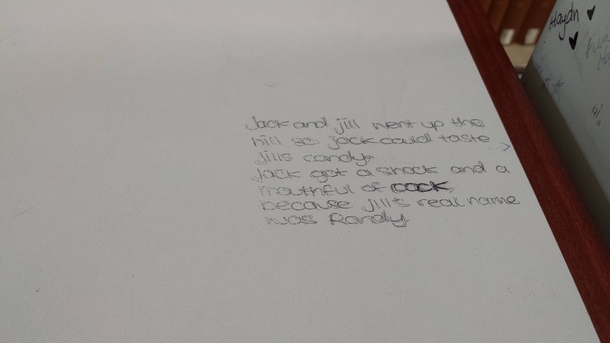 Haydn
Jack and jill went up the
hill so jack could taste
Jills candy
Jack got a shock and a
mouthful of cock,
because jill's real name
was Randy